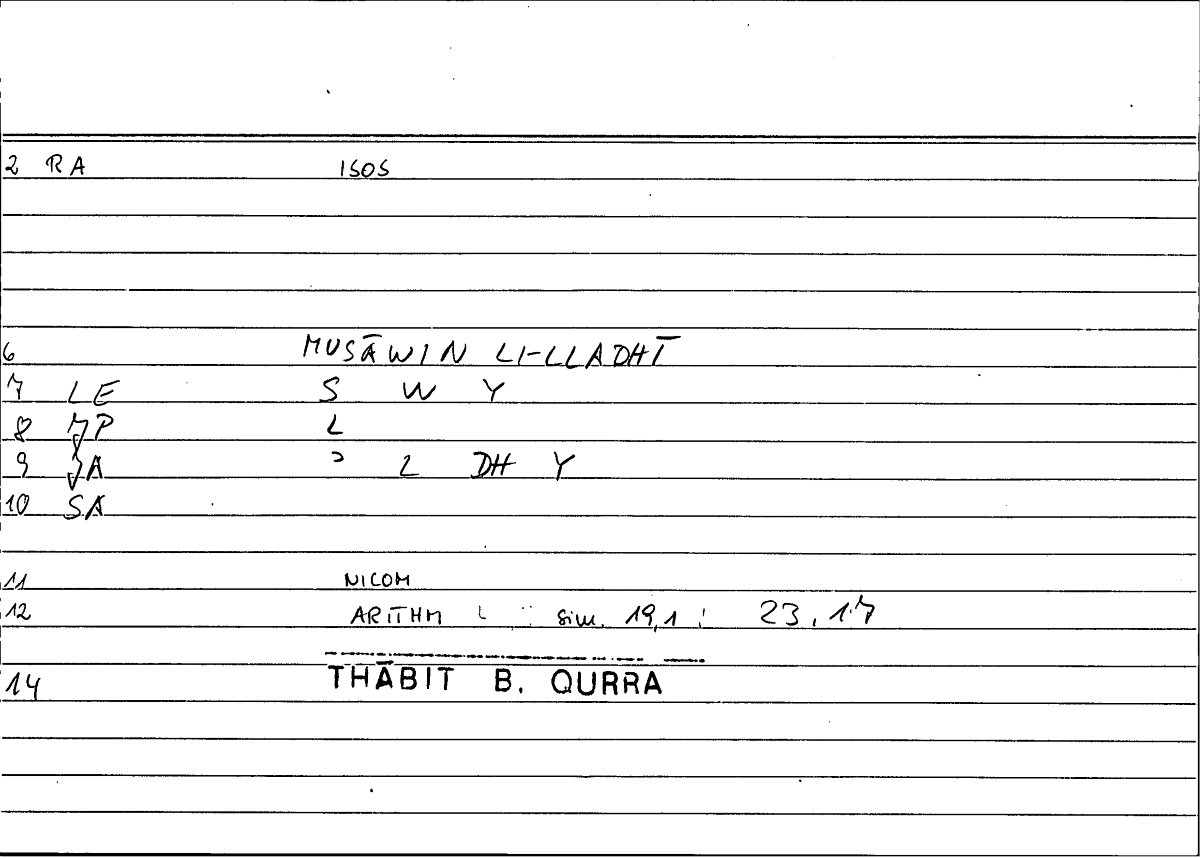 2 RA ISOS
6 MUSĀWIN LI-LLADHĪ
7 LE S W Y
8 JP L
9 JA ʾ L DH Y
10 SA
11 NICOM
12 ARITHM sim. 19,1 23,17
14 THĀBIT B. QURRA